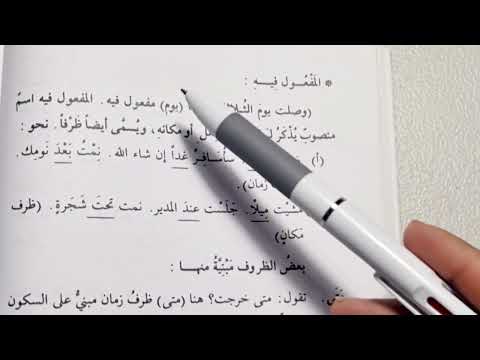 * المَفْعُول فِيـهِ :
(وصلت يومَ (يوم) مفعول فيه . المفعول فيه اسمٌ
منصوبٌ يُذْكَرُ أو مكانه، ويُسْمى أيضاً ظَرْفاً . نحو :
(أ) سأسَافِرُ غداً إن شاء الله . نِمْتُ بَعْدَ نَومِك .
زمان) .
مَشَيْت مِيلًا . جَلَسْت عندَ المدير . نمت تحتَ شَجَرَةٍ . (ظرف
مَكانٍ)
بعضُ الظروف مَبْنِيَّةٌ منهـا :
مَتَى . تقول : متى خرجت؟ هنا (متى) ظرفُ زمان مبنيٌّ على السكون